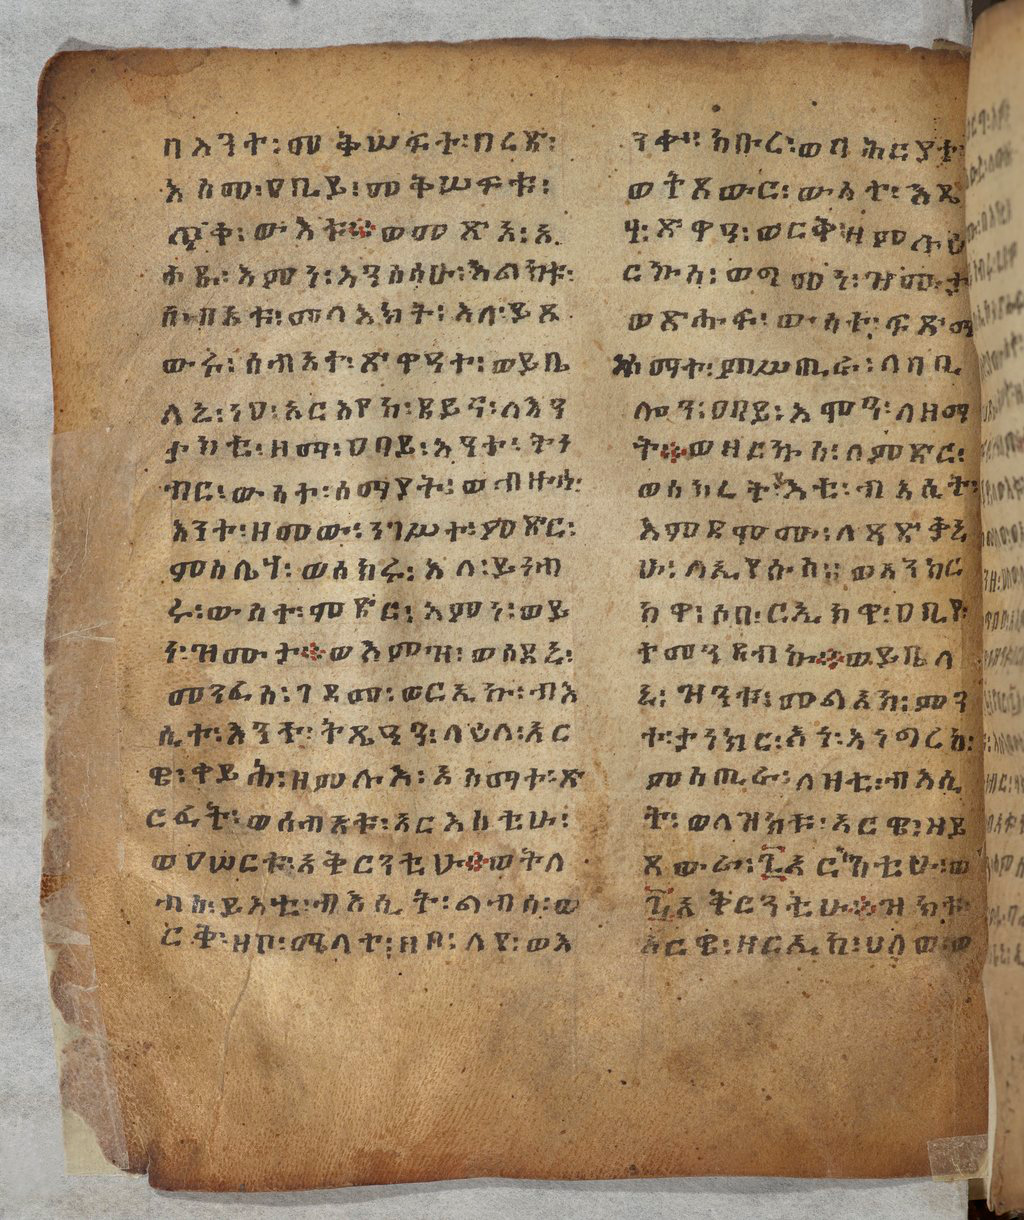 በእንተ፡መቅሠፍተ፡በረድ፡
እስመ፡ዐቢይ፡መቅሠፍቱ፡
ጥቀ፡ውእቱ።ወመጽአ፡አ
ሐዱ፡እምነ፡
መላእክት፡እለ፡ይጸ
ውሩ፡ሰብአተ፡ጽዋዓተ፡ወይቤ
ለኒ፡ነዐ፡አርእየከ፡ደይና፡ለእን
ታክቲ፡ዘማ፡ዐባይ፡እንተ፡ትነ
ብር፡ውስተ፡ማያት፡ወብዙኅ፡
እንተ፡ዘመወ፡ነገሥተ፡ምድር፡
ምስሌሃ፡ወሰክሩ፡እለ፡ይነብ
ሩ፡ውስተ፡ምድር፡እምነ፡ወይ
ነ፡ዝሙታ።ወእምዝ፡ወሰደኒ፡
መንፈስ፡ገዳመ፡ወርኢኩ፡ብእ
ሲተ፡እንዘ፡ትጼዓን፡ላዕለ፡አር
ዌ፡ቀይሕ፡ዘምሉእ፡አስማተ፡ጽ
ርፈት፡ወሰብአቱ፡አርእስቲሁ፡
ወዐሠርቱ፡አቅርንቲሁ።ወትለ
ብስ፡ይእቲ፡ብእሲት፡ልብሰ፡ወ
ርቅ፡ዘቦ፡ሜላተ፡ዘቦ፡ለየ፡ወእ
ንቀ፡፡ክቡረ፡ወባሕርያተ፡
ወትጸውር፡ውስተ፡እዴ
ሃ፡ጽዋዓ፡ወርቅ፡ዘምሉዕ፡
ርኩሰ፡ወግመነ፡ዝሙታ፡
ወጽሑፍ፡ውስተ፡ፍጽማ
ስማተ፡ምሥጢራ፡ለባቢ
ሎን፡ዐባይ፡እሞን፡ለዘማ
ት።ወዘርኩስ፡ለምድር፡
ወሰክረት፡እቲ፡ብእሲት፡
እምደሞሙ፡ለጻድቃኒ
ሁ፡ለኢየሱስ፡፡ወአንክር
ክዋ፡ሶበ፡ርኢክዋ፡ዐቢየ፡
ትመንደብኩ።ወይቤለ
ኒ፡ዝንቱ፡መልአክ፡ምን
ተ፡ታንክር፡አነ፡እነግረከ፡
ምስጢራ፡ለዛቲ፡ብእሲ
ት፡ወለዝክቱ፡አርዌ፡ዘይ
ጸውራ፡፯አርእስቲሁ፡ወ
፲አቅርንቲሁ።ዝክቱ፡
አርዌ፡ዘርኢከ፡ሀለወ፡ወ